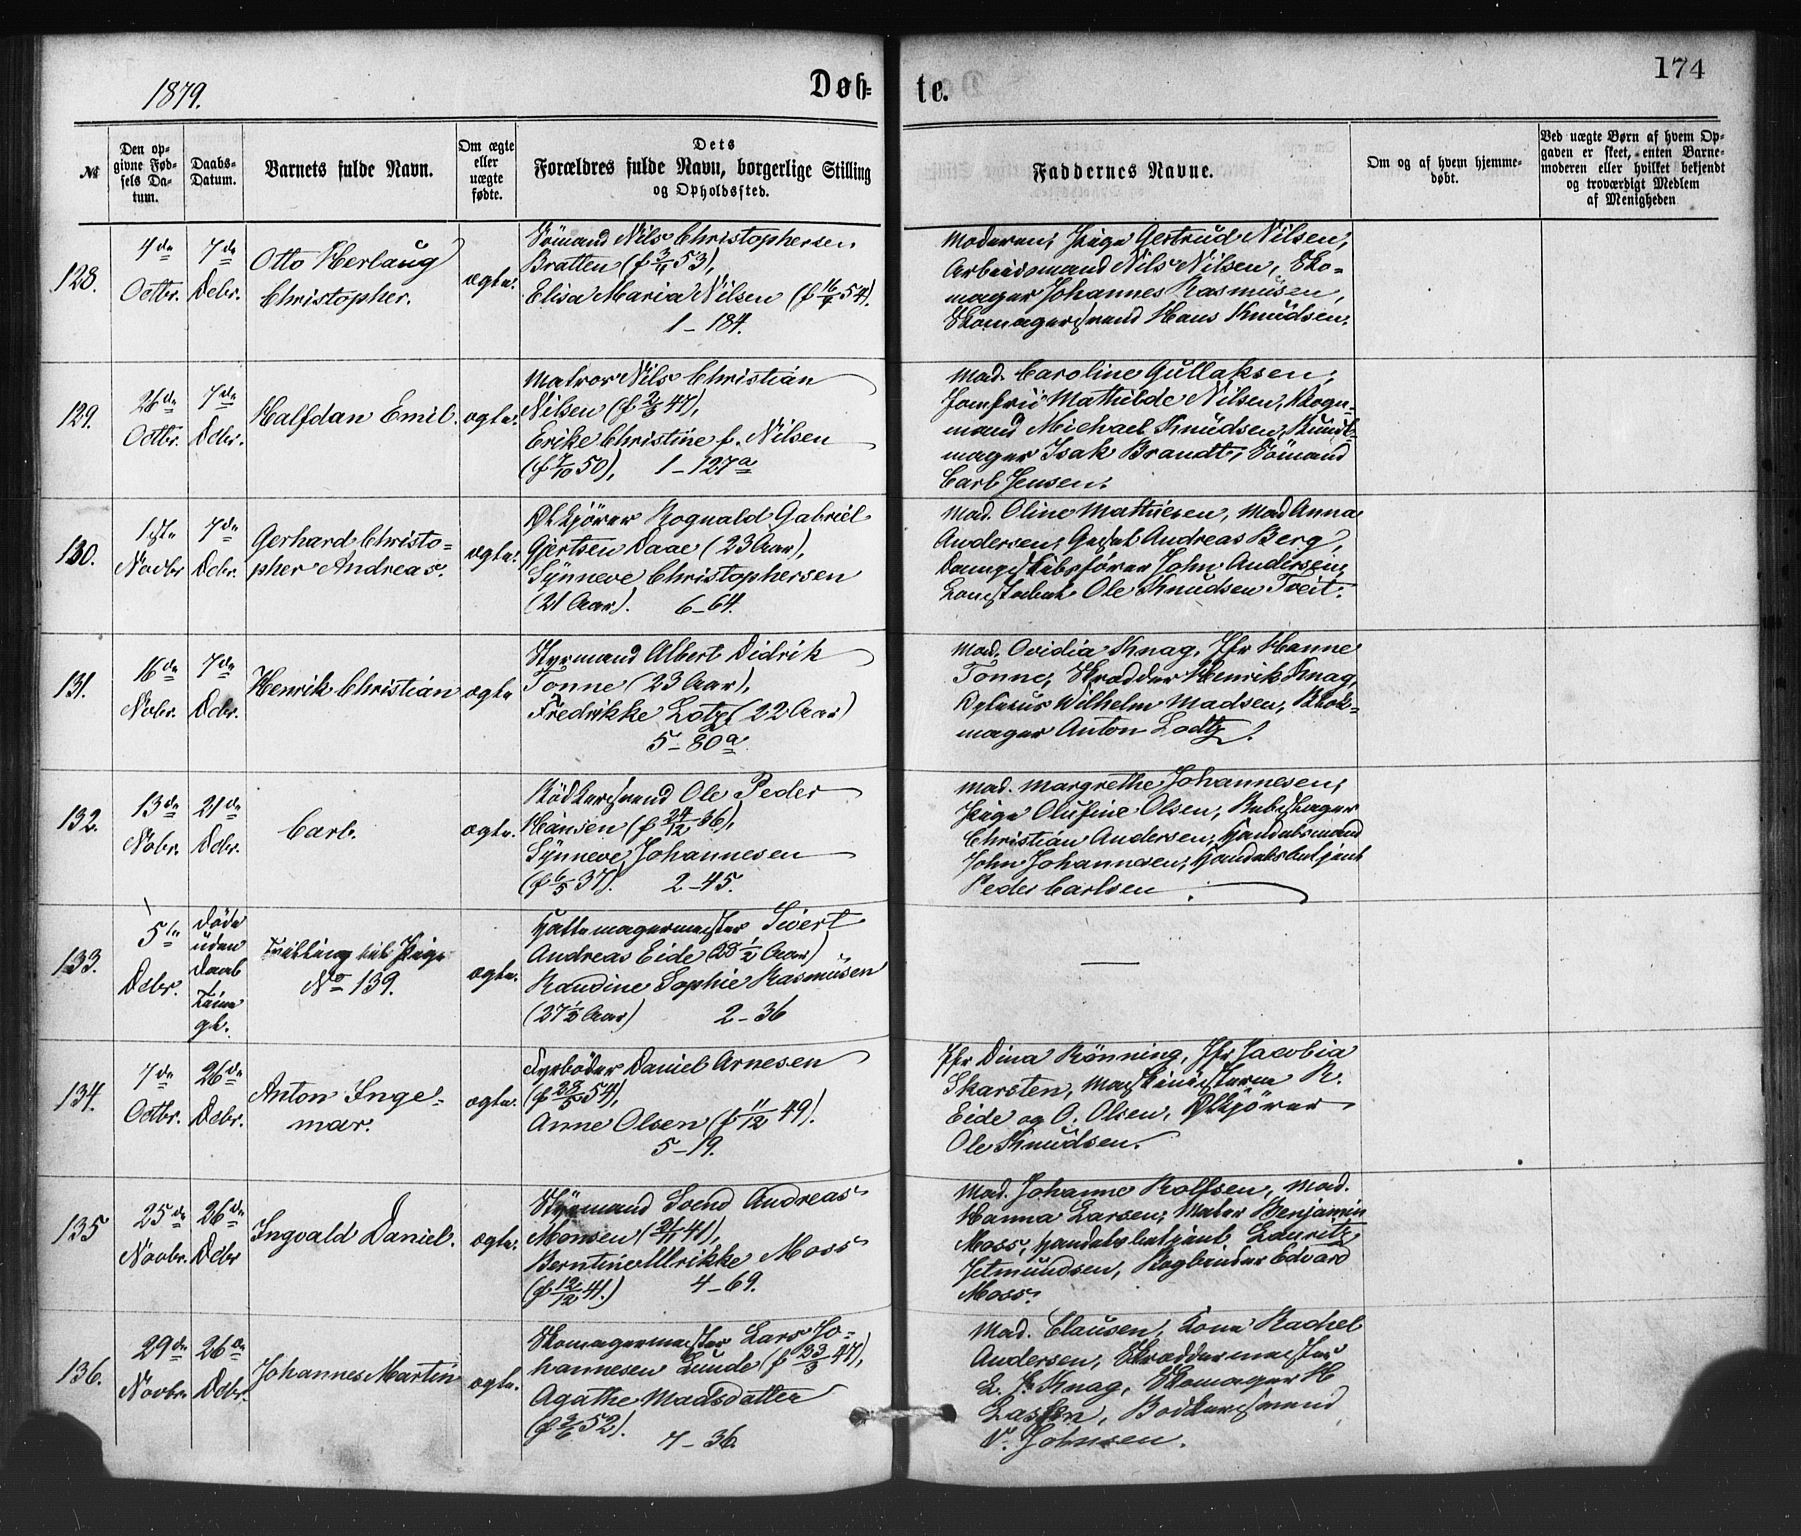 1879.
Døb-
te.
174
№
Den op-
givne Fød-
sels Da-
tum.
Daabs-
Datum.
Barnets fulde Navn.
Om ægte
eller
uægte
fødte.
Dets
Forældres fulde Navn, borgerlige Stilling
og Opholdssted.
Faddernes Navne.
Om og af hvem hjemme-
døbt.
Ved uægte Børn af hvem Op-
gaven er skeet, enten Barne-
moderen eller hvilket bekjendt
og troværdigt Medlem
af Menigheden
128.
7de
Octbr.
7de
Debr.
Otto Herlaug
Christopher.
ægte.
Sömand Nils Christophersen
Bratten (f 3/4 53),
Elisa Maria Nilsen (f 16/4 54).
1-184.
Moderen; Pige Gertrud Nilsen;
Arbeidsmand Nils Nilsen, Sko-
mager Johannes Rasmusen,
Skomagersvend Hans Knudsen.
129.
26de
Octbr.
7de
Dcbr.
Halfdan Emil.
ægte.
Matros Nils Christian
Nilsen (f 2/5 47),
Erike Christine f. Nilsen
(f 7/10 50), 1-127a
Mad. Caroline Gullaksen;
Jomfru Mathilde Nilsen, Vogn-
mand Michael Knudsen, Bundt-
mager Isak Brandt, Sömand
Carl Jensen.
130.
1ste
Novbr
7de
Dcbr.
Gerhard Christo-
pher Andreas.
ægte.
Ölkjörer Rognald Gabriel
Gjertsen Daae (23 Aar),
Synneve Christophersen
(21 Aar). 6-64.
Mad. Oline Mathiesen, Mad Anna
Andersen, Gesel Andreas Berg,
Dampskibsförer John Andersen,
Konstabel Ole Knudsen Tveit.
131.
16de
Nobr.
7de
Dcbr.
Henrik Christian
ægte
Styrmand Albert Didrik
Tonne (23 Aar),
Fredrikke Lotz (22 Aar)
5-80a
Mad. Ovidia Knag, Jfr Hanne
Tonne, Skrædder Henrik Knag
Wilhelm Madsen, Blok-
mager Anton Lodtz.
132.
13de
Nobr.
21de
Dcbr.
Carl.
ægte.
Bödkersvend Ole Peder
Hansen (f 24/12 36),
Synneve Johannesen
(f 6/5 37). 2-45.
Mad. Margrethe Johannesen,
Pige Olufine Olsen, Rebslager
Christian Andersen, Handelsmand
John Johannesen, Handelsbetjent
Peder Carlsen
133.
5te
Dcbr.
Döde
uden
Daab
gl.
Tvilling til Pige
No 139.
ægte.
Hattemagermester Sivert
Andreas Eide (28 1/2 Aar)
Randine Sophie Rasmusen
(27 1/2 Aar) 2-36
134.
7de
Octbr.
26de
Dcbr.
Anton Inge-
mar.
ægte.
Fyrböder Daniel Arnesen
(f 23/5 54),
Anne Olsen (f 11/12 49).
5-19.
Jfr Dina Rönning, Jfr Jacobia
Skarsten, Maskinisterne R.
Eide og O. Olsen, Ölkjörer
Ole Knudsen.
135
25de
Novbr.
26de
Dcbr
Ingvald Daniel.
ægte.
Styrmand Svend Andreas
Monsen (21/4 41),
Berntine Ulrikke Moss
(f 12/12 41.) 4-69.
Mad. Johanne Rolfsen, Mad.
Hanna Larsen; Maler Benjamin
Moss, Handelsbetjent Lauritz
Jetmundsen, Bogbinder Edvard
Moss.
136.
29de
Novbr.
26de
Dcbr.
Johannes Martin
ægte.
Skomagermester Lars Jo-
hannesen Lunde (f 23/3 47),
Agathe Madsdatter
(f 3/6 52).
7-36
Mad. Clausen, Kone Rachel
Andersen, Skræddermester
L. J. Knag, Skomager H
Lassen, Bödkersvend
V. Johnsen.